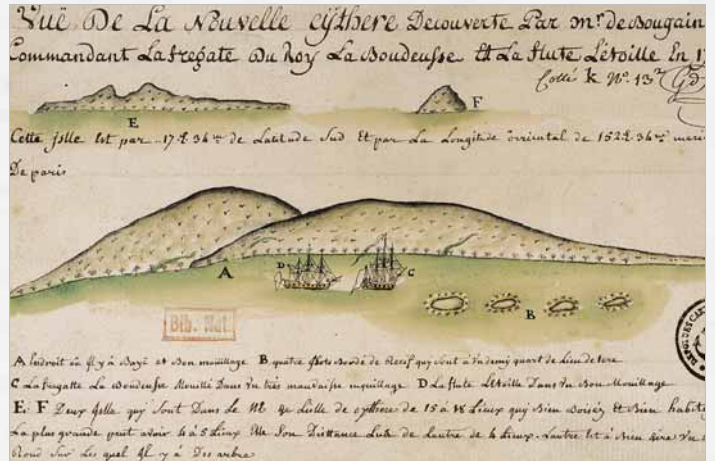 Vuë De La Nouvelle cÿthere Decouverte Par mr. de Bougain
Commandant La fregate Du Roy La Boudeusse Et La flute L'etoille En 17
Cotté k No. 13
E
F
Cette jslle Est par 17 34 de Latitude Sud Et par La Longitude orriental de 152 34 meri
De paris
A
D
C
B
Bib. Nat
A Lendroit où jl y à Bayë et Bon mouillage B quatre jlots Bordé de Recif qui sont à Vn demy quart de Lieu de tere
C La fregatte La Boudeusse Mouillé Dans Vn très mauvaisse mouillage D La flute L'etoille Dans Vn Bon Mouillage
E F Deux jslle quy Sont Dans Le de Lille de cythere de 15 à 18 Lieux quy Bien Boisez Et Bien habité
La plus grande peut avoir 4 à 5 Lieux Son Disttance Lune de Lautre de 4 Lieux. Lautre Est à Bien
Rond Sur Les quel jl y à Des arbre